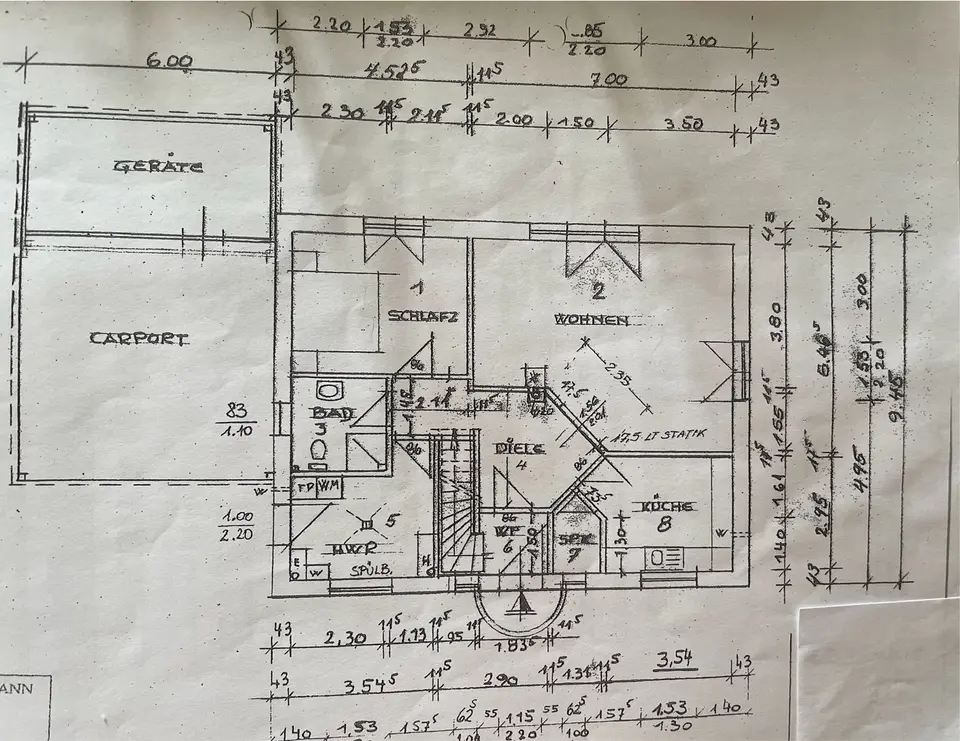 2.20 1.53 2.92 .85 3.00
2.20 2.20
6.00 43 4.52⁵ 11⁵ 7.00 43
43 2.30 11⁵ 2.11⁵ 11⁵ 2.00 1.50 3.50 43
GERÄTE
CARPORT
1
SCHLAFZ
2
WOHNEN
86
2.35
BAD
3
1.48
2.11⁵
11⁵
17,5
1.56
2.01
17,5 LT STATIK
83
1.10
DIELE
4
86
86
W
FD WM
1.00
2.20
5
HWR
SPÜLB.
E
W
H
86
WF
6
1.50
SPK
7
1.30
KÜCHE
8
W
43
3.80
11⁵
1.55
11⁵
1.61
1.40
43
6.46⁵
11⁵
2.95
43
3.00
1.53
2.20
4.95
9.45
43 2,30 11⁵ 1.13 11⁵ 95 1.83⁵ 11⁵
43 3.54⁵ 11⁵ 2.90 11⁵ 1.31 11⁵ 3,54 43
1.40 1.53 1.57⁵ 62⁵ 55 1.15 55 62⁵ 1.57⁵ 1.53 1.40
2.20 1.00 1.30
ANN